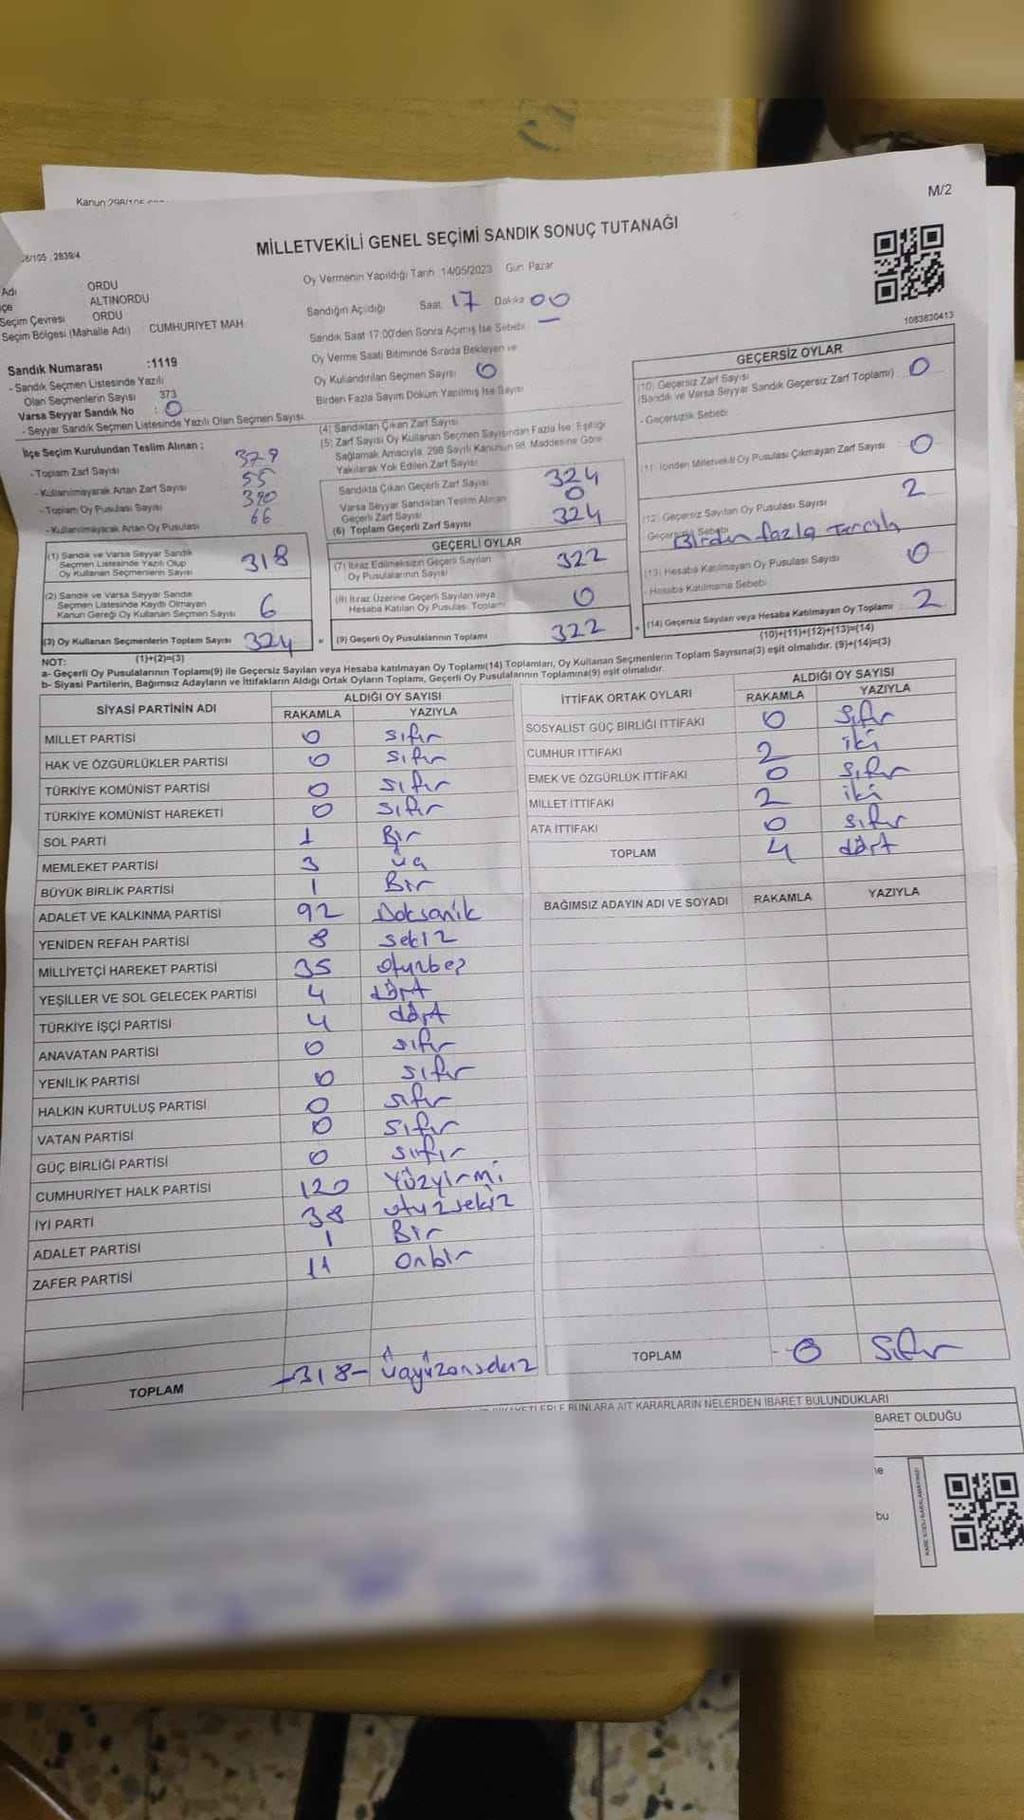 Kanun 298/105
M/2
MİLLETVEKİLİ GENEL SEÇİMİ SANDIK SONUÇ TUTANAĞI
/105 , 2839/4
Oy Vermenin Yapıldığı Tarih 14/05/2023 Gün Pazar
Adı ORDU
çe ALTINORDU
Seçim Çevresi ORDU
Seçim Bölgesi (Mahalle Adı) CUMHURİYET MAH
Sandığın Açıldığı Saat 17 Dakika 00
Sandık Saat 17:00'den Sonra Açılmış İse Sebebi —
Oy Verme Saati Bitiminde Sırada Bekleyen ve
Oy Kullandırılan Seçmen Sayısı 0
Birden Fazla Sayım Döküm Yapılmış İse Sayısı
1083830413
Sandık Numarası :1119
- Sandık Seçmen Listesinde Yazılı
Olan Seçmenlerin Sayısı 373
Varsa Seyyar Sandık No : 0
- Seyyar Sandık Seçmen Listesinde Yazılı Olan Seçmen Sayısı
İlçe Seçim Kurulundan Teslim Alınan :
- Toplam Zarf Sayısı 379
- Kullanılmayarak Artan Zarf Sayısı 55
- Toplam Oy Pusulası Sayısı 390
- Kullanılmayarak Artan Oy Pusulası 66
(1) Sandık ve Varsa Seyyar Sandık
Seçmen Listesinde Yazılı Olup
Oy Kullanan Seçmenlerin Sayısı 318
(2) Sandık ve Varsa Seyyar Sandık
Seçmen Listesinde Kaydı Olmayan
Kanun Gereği Oy Kullanan Seçmen Sayısı 6
(3) Oy Kullanan Seçmenlerin Toplam Sayısı 324
(1)+(2)=(3)
(4) Sandıktan Çıkan Zarf Sayısı
(5) Zarf Sayısı Oy Kullanan Seçmen Sayısından Fazla İse; Eşitliği
Sağlamak Amacıyla, 298 Sayılı Kanunun 98. Maddesine Göre
Yakılarak Yok Edilen Zarf Sayısı
Sandıkta Çıkan Geçerli Zarf Sayısı 324
Varsa Seyyar Sandıktan Teslim Alınan
Geçerli Zarf Sayısı 0
(6) Toplam Geçerli Zarf Sayısı 324
GEÇERLİ OYLAR
(7) İtiraz Edilmeksizin Geçerli Sayılan
Oy Pusulalarının Sayısı 322
(8) İtiraz Üzerine Geçerli Sayılan veya
Hesaba Katılan Oy Pusulası Toplamı 0
(9) Geçerli Oy Pusulalarının Toplamı 322
GEÇERSİZ OYLAR
(10) Geçersiz Zarf Sayısı
(Sandık ve Varsa Seyyar Sandık Geçersiz Zarf Toplamı) 0
- Geçersizlik Sebebi
(11) İçinden Milletvekili Oy Pusulası Çıkmayan Zarf Sayısı 0
(12) Geçersiz Sayılan Oy Pusulası Sayısı 2
Birden fazla tercih
(13) Hesaba Katılmayan Oy Pusulası Sayısı 0
- Hesaba Katılmama Sebebi
(14) Geçersiz Sayılan veya Hesaba Katılmayan Oy Toplamı 2
(10)+(11)+(12)+(13)=(14)
NOT:
a- Geçerli Oy Pusulalarının Toplamı(9) ile Geçersiz Sayılan veya Hesaba katılmayan Oy Toplamı(14) Toplamları, Oy Kullanan Seçmenlerin Toplam Sayısına(3) eşit olmalıdır. (9)+(14)=(3)
b- Siyasi Partilerin, Bağımsız Adayların ve İttifakların Aldığı Ortak Oyların Toplamı, Geçerli Oy Pusulalarının Toplamına(9) eşit olmalıdır.
SİYASİ PARTİNİN ADI ALDIĞI OY SAYISI
RAKAMLA YAZIYLA
MİLLET PARTİSİ 0 sıfır
HAK VE ÖZGÜRLÜKLER PARTİSİ 0 sıfır
TÜRKİYE KOMÜNİST PARTİSİ 0 sıfır
TÜRKİYE KOMÜNİST HAREKETİ 0 sıfır
SOL PARTİ 1 Bir
MEMLEKET PARTİSİ 3 üç
BÜYÜK BİRLİK PARTİSİ 1 Bir
ADALET VE KALKINMA PARTİSİ 92 Doksanik
YENİDEN REFAH PARTİSİ 8 sekiz
MİLLİYETÇİ HAREKET PARTİSİ 35 otuzbeş
YEŞİLLER VE SOL GELECEK PARTİSİ 4 dört
TÜRKİYE İŞÇİ PARTİSİ 4 dört
ANAVATAN PARTİSİ 0 sıfır
YENİLİK PARTİSİ 0 sıfır
HALKIN KURTULUŞ PARTİSİ 0 sıfır
VATAN PARTİSİ 0 sıfır
GÜÇ BİRLİĞİ PARTİSİ 0 sıfır
CUMHURİYET HALK PARTİSİ 120 Yüzyirmi
İYİ PARTİ 38 otuzsekiz
ADALET PARTİSİ 1 Bir
ZAFER PARTİSİ 11 Onbir
TOPLAM -318- üçyüzonsekiz
İTTİFAK ORTAK OYLARI ALDIĞI OY SAYISI
RAKAMLA YAZIYLA
SOSYALİST GÜÇ BİRLİĞİ İTTİFAKI 0 sıfır
CUMHUR İTTİFAKI 2 iki
EMEK VE ÖZGÜRLÜK İTTİFAKI 0 sıfır
MİLLET İTTİFAKI 2 iki
ATA İTTİFAKI 0 sıfır
TOPLAM 4 dört
BAĞIMSIZ ADAYIN ADI VE SOYADI RAKAMLA YAZIYLA
TOPLAM - 0 sıfır
BUNLARA AİT KARARLARIN NELERDEN İBARET BULUNDUKLARI
BARET OLDUĞU
ne
bu